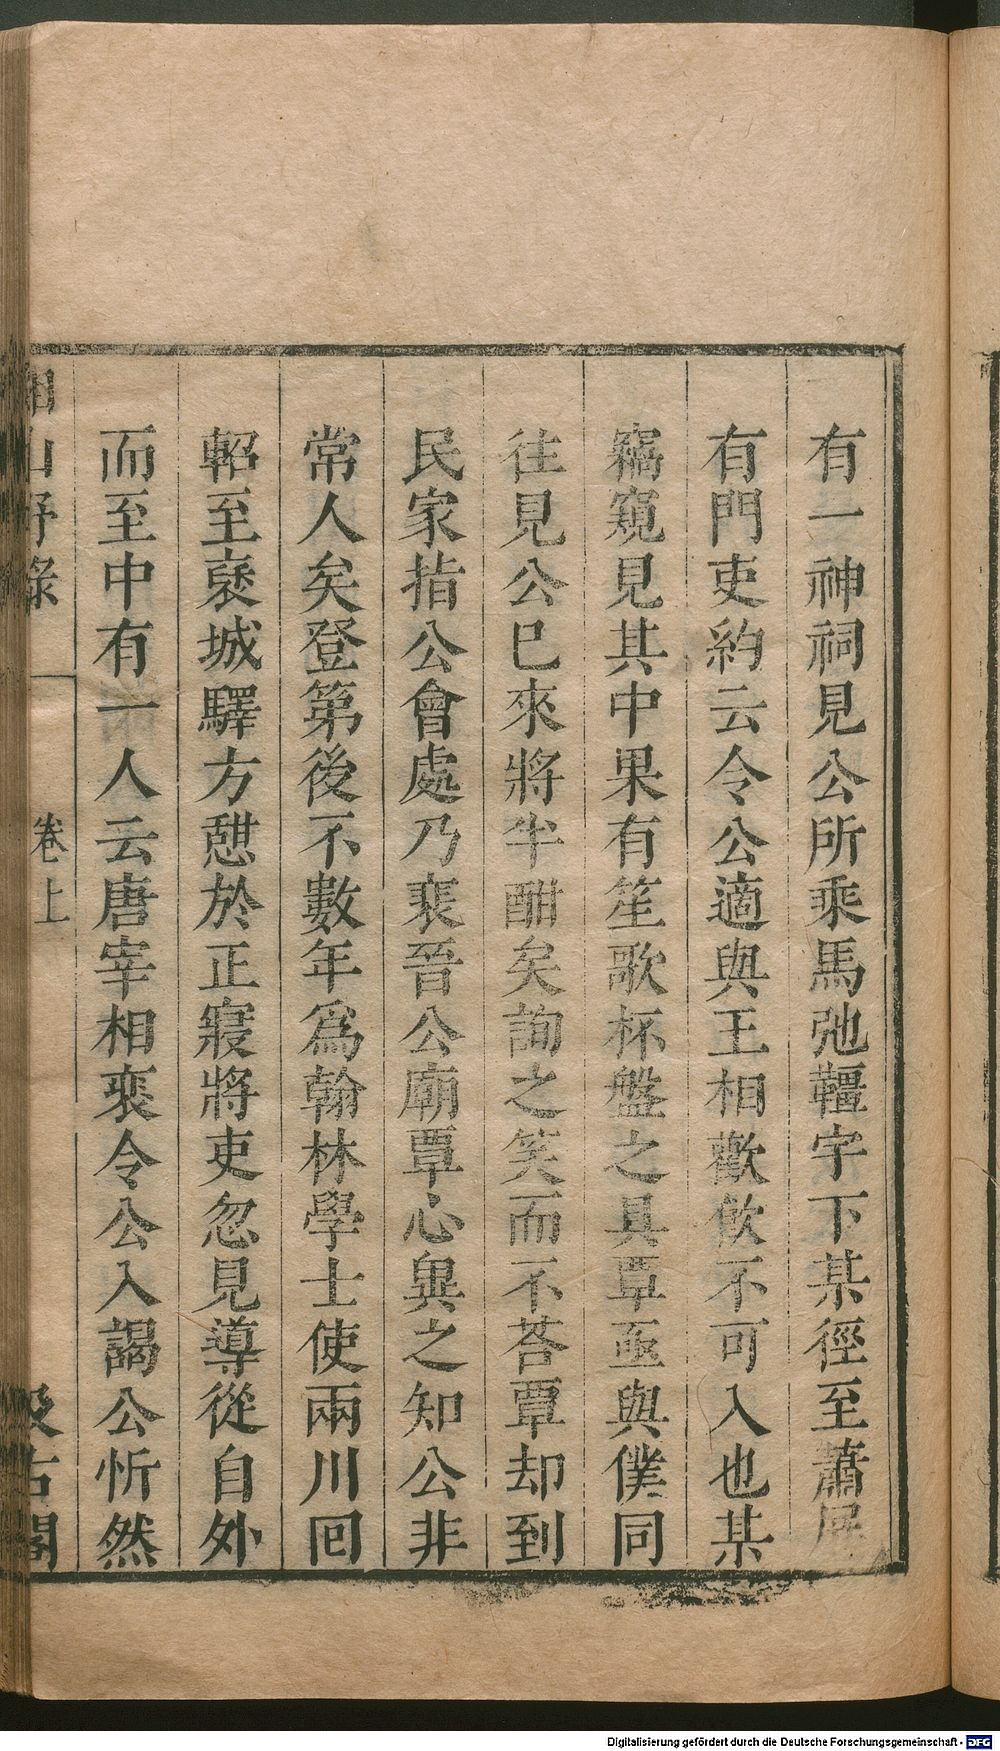 有一神祠見公所乘馬弛韁宇下某徑至蕭屏
有門吏約云令公適與王相歡飲不可入也某
竊窺見其中果有笙歌杯盤之具覃亟與僕同
往見公巳來將半酣矣詢之笑而不荅覃却到
民家指公會處乃裴晉公廟覃心異之知公非
常人矣登第後不數年爲翰林學士使兩川囘
軺至褒城驛方憇於正寢將吏忽見導從自外
而至中有一人云唐宰相裴令公入謁公忻然
湘山野錄
卷上
汲古閣
Digitalisierung gefördert durch die Deutsche Forschungsgemeinschaft - DFG